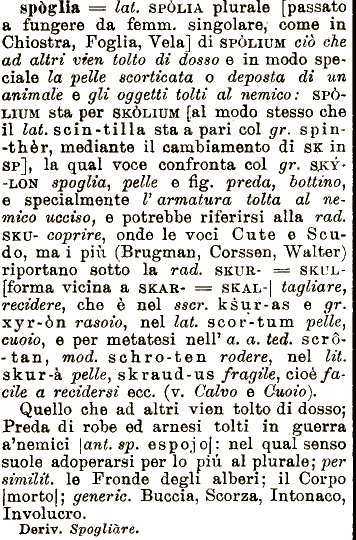 spòglia = lat. SPÒLIA plurale [passato
a fungere da femm. singolare, come in
Chiostra, Foglia, Vela] di SPÒLIUM ciò che
ad altri vien tolto di dosso e in modo spe-
ciale la pelle scorticata o deposta di un
animale e gli oggetti tolti al nemico: SPÒ-
LIUM sta per SKÒLIUM [al modo stesso che
il lat. scin-tilla sta a pari col gr. spin-
-thêr, mediante il cambiamento di SK in
SP], la qual voce confronta col gr. SKÝ-
-LON spoglia, pelle e fig. preda, bottino,
e specialmente l'armatura tolta al ne-
mico ucciso, e potrebbe riferirsi alla rad.
SKU- coprire, onde le voci Cute e Scu-
do, ma i più (Brugman, Corssen, Walter)
riportano sotto la rad. SKUR- = SKUL-
[forma vicina a SKAR- = SKAL-] tagliare,
recidere, che è nel sscr. kšur-as e gr.
xyr-òn rasoio, nel lat. scor-tum pelle,
cuoio, e per metatesi nell'a. a. ted. scrô-
-tan, mod. schro-ten rodere, nel lit.
skur-à pelle, skraud-us fragile, cioè fa-
cile a recidersi ecc. (v. Calvo e Cuoio).
Quello che ad altri vien tolto di dosso;
Preda di robe ed arnesi tolti in guerra
a'nemici [ant. sp. espojo]: nel qual senso
suole adoperarsi per lo più al plurale; per
similit. le Fronde degli alberi; il Corpo
[morto]; generic. Buccia, Scorza, Intonaco,
Involucro.
Deriv. Spogliàre.